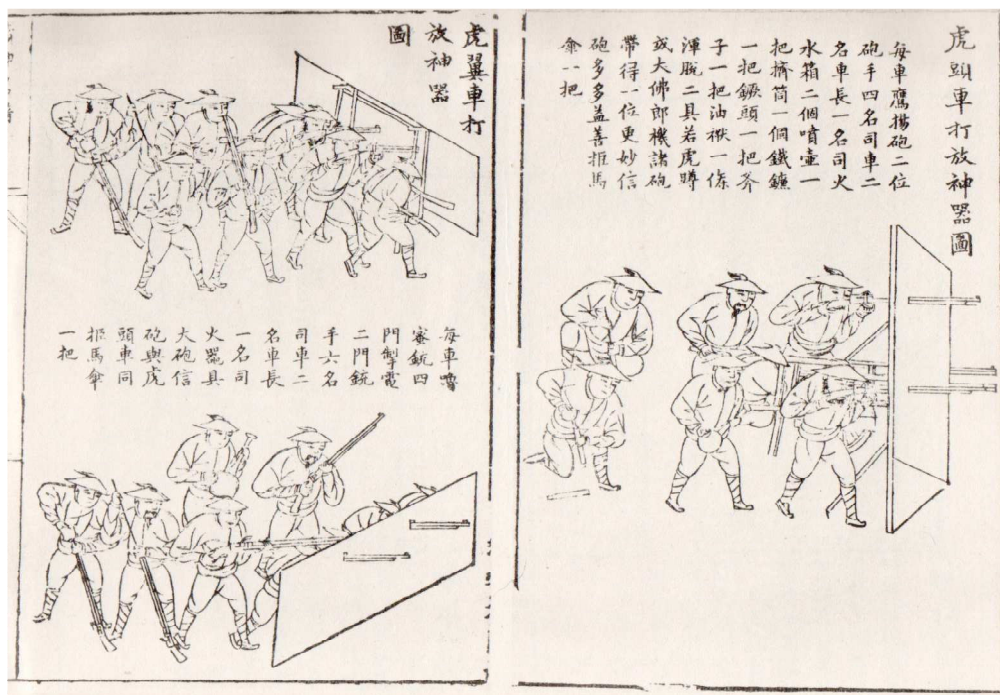 虎頭車打放神器圖
每車鷹揚砲二位
砲手四名司車二
名車長一名司火
水箱二個噴壷一
把擠筒一個鐵鑣
一把钁頭一把斧
子一把油楸一條
渾脫二具若虎蹲
或大佛郎機諸砲
帶得一位更妙信
砲多多益善拒馬
傘一把
虎翼車打
放神器
圖
每車嚕
蜜銃四
門掣電
二門銃
手六名
司車二
名車長
一名司
火器具
大砲信
砲與虎
頭車同
拒馬傘
一把